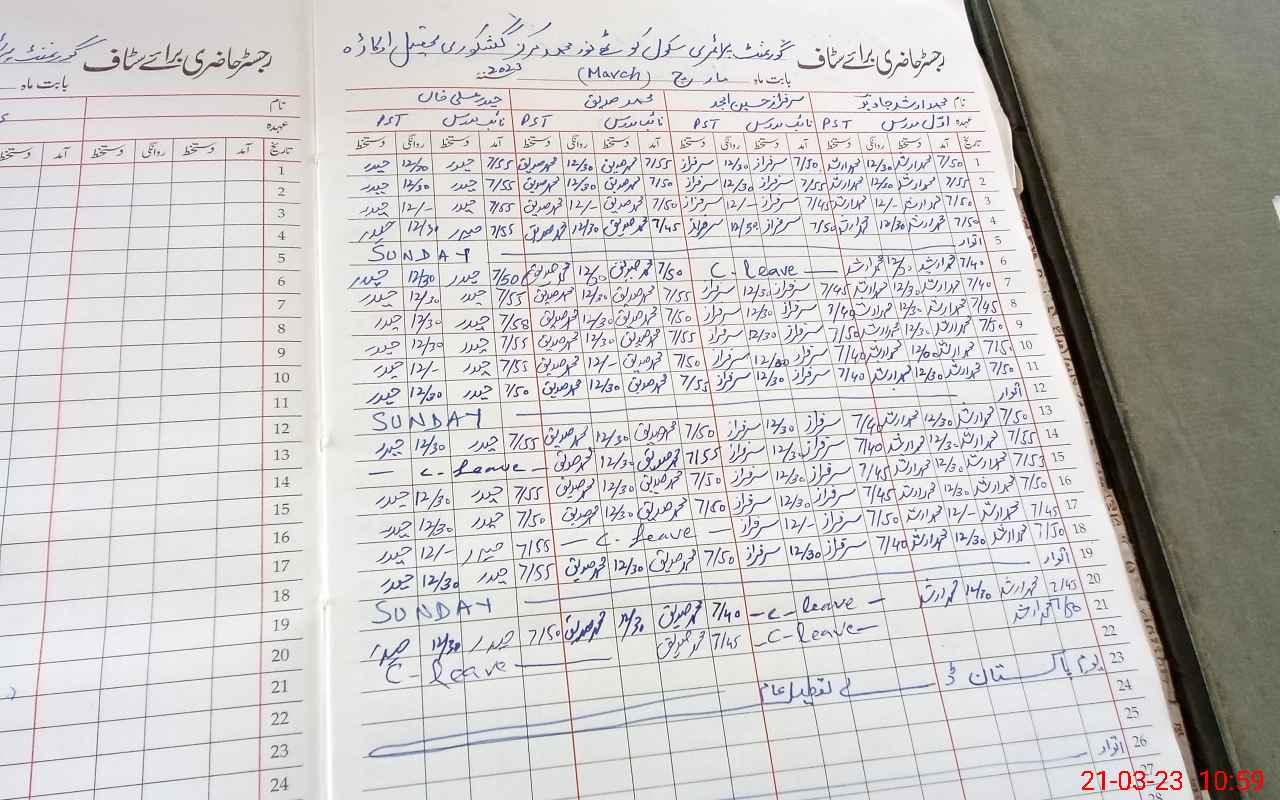 رجسٹر حاضری برائے سٹاف گورنمنٹ پرائمری سکول
بابت ماہ مارچ (March) 2023
نام محمد ارشد جاوید سرفراز حسین امجد محمد صدیق حیدر علی خاں
عہدہ اول مدرس PST نائب مدرس PST نائب مدرس PST نائب مدرس PST
تاریخ آمد دستخط روانگی دستخط آمد دستخط روانگی دستخط آمد دستخط روانگی دستخط آمد دستخط روانگی دستخط
1 7/50 محمد ارشد 12/30 محمد ارشد 7/50 سرفراز 12/30 سرفراز 7/55 محمد صدیق 12/30 محمد صدیق 7/55 حیدر 12/30 حیدر
2 7/55 محمد ارشد 12/30 محمد ارشد 7/55 سرفراز 12/30 سرفراز 7/50 محمد صدیق 12/30 محمد صدیق 7/55 حیدر 12/30 حیدر
3 7/50 محمد ارشد 12/- محمد ارشد 7/45 سرفراز 12/- سرفراز 7/50 محمد صدیق 12/- محمد صدیق 7/55 حیدر 12/- حیدر
4 7/50 محمد ارشد 12/30 محمد ارشد 7/50 سرفراز 12/30 سرفراز 7/45 محمد صدیق 12/30 محمد صدیق 7/55 حیدر 12/30 حیدر
5 اتوار SUNDAY
6 7/40 محمد ارشد محمد ارشد C-leave 7/50 محمد صدیق محمد صدیق 7/50 حیدر 12/30 حیدر
7 7/40 محمد ارشد 12/30 محمد ارشد 7/45 سرفراز 12/30 سرفراز 7/55 محمد صدیق 12/30 محمد صدیق 7/55 حیدر 12/30 حیدر
8 7/45 محمد ارشد 12/30 محمد ارشد 7/40 سرفراز 12/30 سرفراز 7/50 محمد صدیق 12/30 محمد صدیق 7/58 حیدر 12/30 حیدر
9 7/50 محمد ارشد 12/30 محمد ارشد 7/50 سرفراز 12/30 سرفراز 7/55 محمد صدیق 12/30 محمد صدیق 7/55 حیدر 12/30 حیدر
10 7/50 محمد ارشد محمد ارشد 7/40 سرفراز سرفراز 7/50 محمد صدیق 12/- محمد صدیق 7/55 حیدر 12/- حیدر
11 7/50 محمد ارشد 12/30 محمد ارشد 7/40 سرفراز 12/30 سرفراز 7/55 محمد صدیق 12/30 محمد صدیق 7/50 حیدر 12/30 حیدر
12 اتوار SUNDAY
13 7/50 محمد ارشد 12/30 محمد ارشد 7/40 سرفراز 12/30 سرفراز 7/50 محمد صدیق 12/30 محمد صدیق 7/55 حیدر 12/30 حیدر
14 7/55 محمد ارشد 12/30 محمد ارشد 7/40 سرفراز 12/30 سرفراز 7/55 محمد صدیق 12/30 محمد صدیق C-leave
15 محمد ارشد 12/30 محمد ارشد 7/45 سرفراز 12/30 سرفراز 7/50 محمد صدیق 12/30 محمد صدیق 7/55 حیدر 12/30 حیدر
16 7/50 محمد ارشد 12/30 محمد ارشد 7/45 سرفراز 12/30 سرفراز 7/50 محمد صدیق 12/30 محمد صدیق 7/50 حیدر 12/30 حیدر
17 7/45 محمد ارشد 12/- محمد ارشد 7/50 سرفراز 12/- سرفراز C-leave 7/55 حیدر 12/- حیدر
18 7/50 محمد ارشد 12/30 محمد ارشد 7/40 سرفراز 12/30 سرفراز 7/50 محمد صدیق 12/30 محمد صدیق 7/55 حیدر 12/30 حیدر
19 اتوار SUNDAY
20 7/45 محمد ارشد 12/30 محمد ارشد C-leave 7/40 محمد صدیق 12/30 محمد صدیق 7/50 حیدر 12/30 حیدر
21 7/50 محمد ارشد C-leave 7/45 محمد صدیق C-leave
22
23 یوم پاکستان کی تعطیل عام
24
25
26 اتوار
27
28
رجسٹر حاضری برائے سٹاف گورنمنٹ
بابت ماہ
نام
عہدہ
تاریخ آمد دستخط روانگی دستخط آمد دستخط
1
2
3
4
5
6
7
8
9
10
11
12
13
14
15
16
17
18
19
20
21
22
23
24
21-03-23 10:59